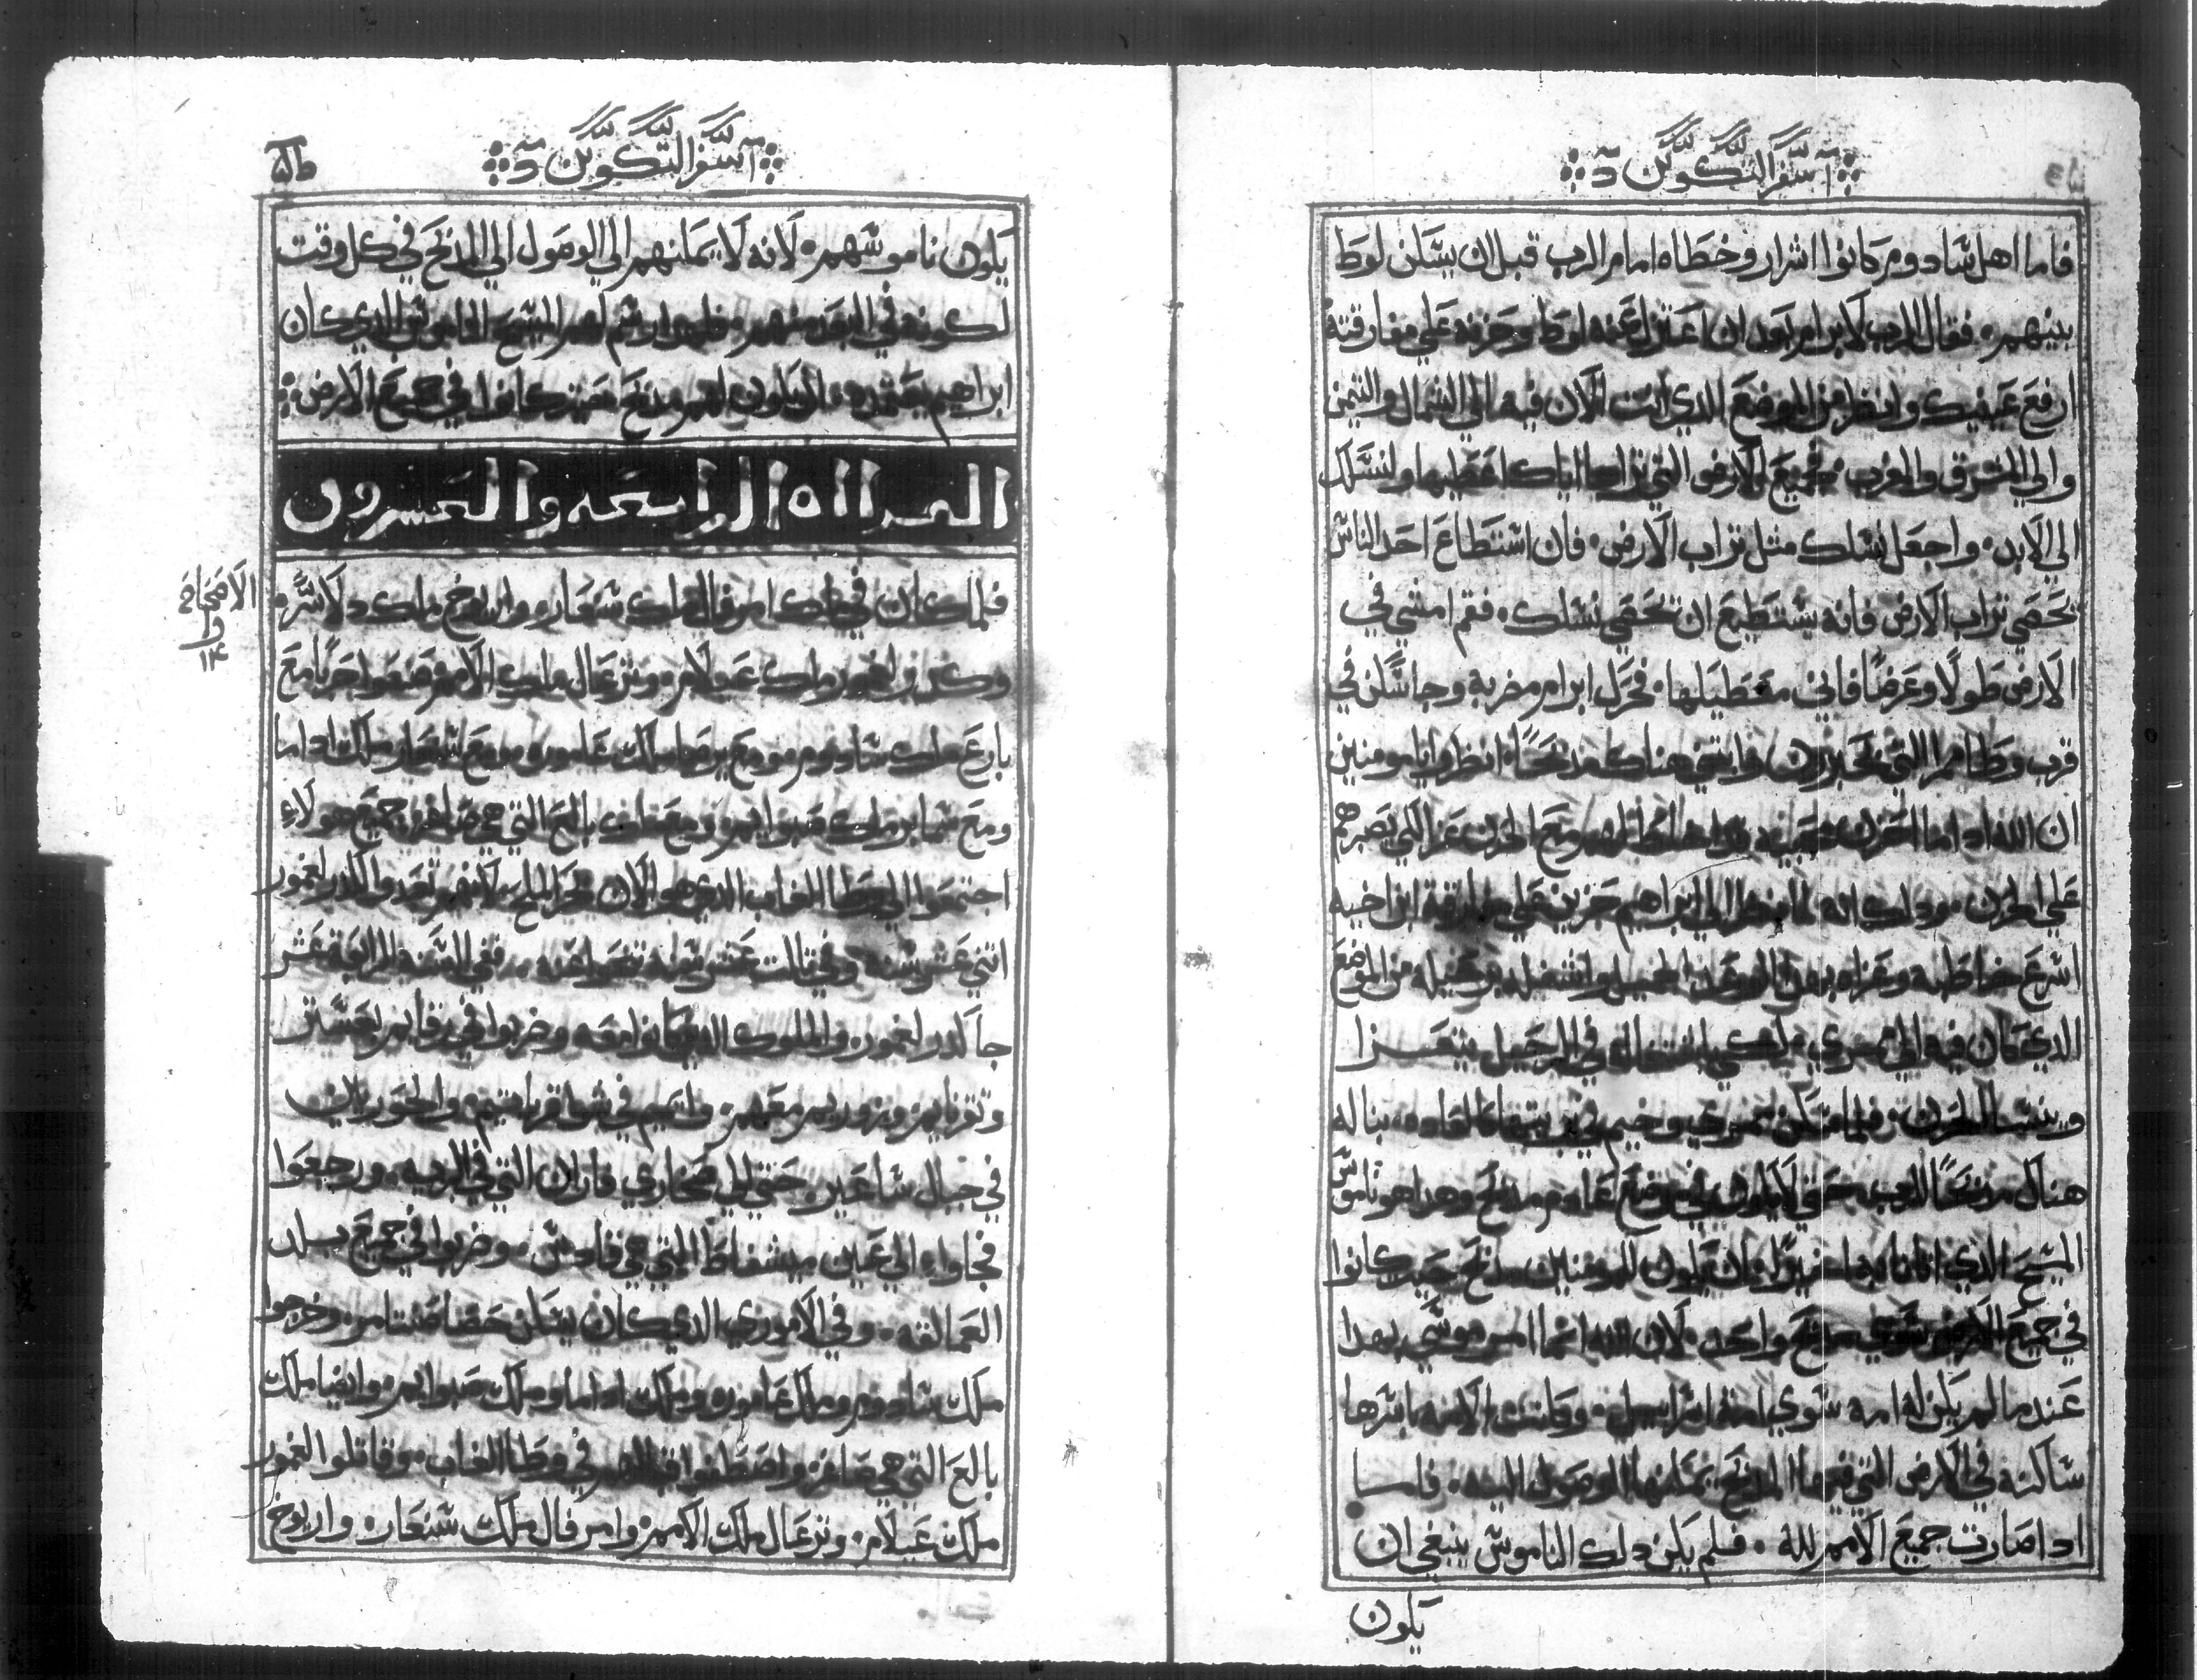 سفر التكوين
فاما اهل سادوم كانوا اشرار وخطاه امام الرب قبل ان يسكن لوط
بينهم. فقال الرب لابرام بعد ان اعتزل عنه لوط وحزنه علي مفارقته
ارفع عينيك وانظر من الموضع الدي انت الان فيه الي الشمال واليمن
والي الشرق والغرب. فجميع الارض التي تراها اياك اعطيها ولنسلك
الي الابد. واجعل نسلك مثل تراب الارض. فان استطاع احد الناس
يحصي تراب الارض فانه يستطيع ان يحصي نسلك. فقم امشي في
الارض طولا وعرضا فاني معطيكها. فحرك ابرام مضربه وجا سكن في
قرب وطا ممرا التي بحبرون وابتني هناك مدبحًا. انظروا يا مومنين
ان الله ادا ما احزن يصبرهم
علي الحزن. ودلك انه لما نظر الي ابراهيم حزين علي مفارقة ابن اخيه
اسرع خاطبه وعزاه بهدا الوعد الجميل واشغله برحيله من الموضع
الدي كان فيه الي ممري لكي باشتغاله في الرحيل يتعزا
وينسا الحزن. فلما سكن ممري وخيم في بريتها كالعاده. بنا له
هناك مدبحًا للرب حتي لا يكون في موضع عادم مدبح وهدا هو ناموس
المسيح الدي اتانا به اخيرًا بان يكون للمومنين مدبح حيت كانوا
في جميع الارض سوي مدبح واحد. لان الله انما امر موسي بهدا
عندما لم يكن له امه سوي امة اسراييل. وكانت الامه باسرها
ساكنه في الارض التي فيها المدبح يمكنها الوصول اليه. فاما
ادا صارت جميع الامم لله. فلم يكن دلك الناموس ينبغي ان
يكون
سفر التكوين
يكون ناموسهم. لانه لا يمكنهم الي الوصول الي المدبح في كل وقت
لكونه في البعد منهم. فلهدا رسم لهم المسيح الناموس الدي كان
ابراهيم يعتمده. ان يكون لهم مدبح حيت كانوا في جميع الارض
القراه الرابعه والعشرون
الاصحاح
١٤
فلما كان في ملك امرفال ملك شنعار. واريوخ ملك دلاسر.
وكدرلغمور ملك عيلام. وترغال ملك الامم. صنعوا حربًا مع
بارع ملك سادوم. ومع برصا ملك عاموره. ومع شنعار ملك اداما
ومع شمابر ملك صبواييم. ومع ملك بالع التي هي صاغر. جميع هولاء
اجتمعوا الي وطا الغاب الدي هو الان بحر الملح. لانهم تعبدوا لكدرلغمور
اتني عشر سنه. وفي تالت عشر سنه تعصوا عنه. ففي السنه الرابعة عشر
جا كدرلغمور والملوك الدين كانوا معه. وضربوا في رفاييم بعستر
وقرناييم. وزوزيم معهم. واتييم في شوا قرياتييم. والحوريين
في جبال ساعير. حتي الي صحاري فاران التي في البريه. ورجعوا
فجاوا الي عين ميشفاط التي هي قادس. وضربوا في جميع بلد
العمالقه. وفي الاموري الدي كان يسكن حصاصنتامر. وخرجوا
ملك سادوم وملك عاموره وملك اداما وملك صبواييم. وايضا ملك
بالع التي هي صاغر. واصطفوا قبالهم في وطا الغاب. وقاتلوا لغمور
ملك عيلام. وترغال ملك الامم. وامرفال ملك شنعار. واريوخ